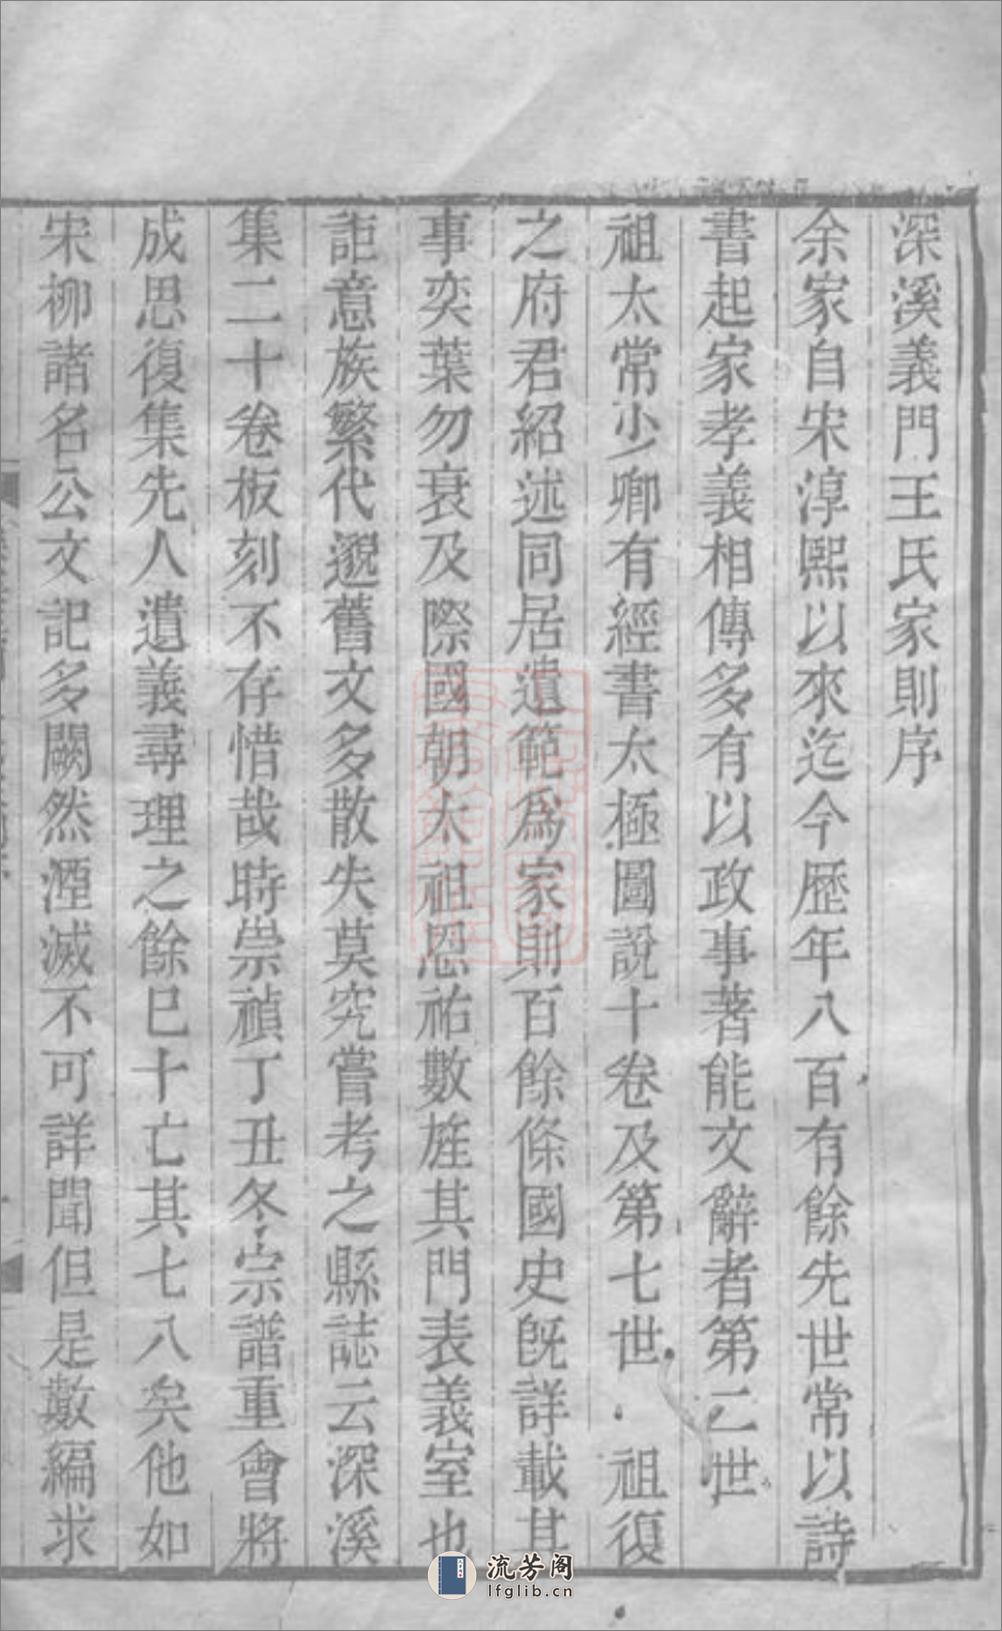 深溪義門王氏家則序
余家自宋淳熙以來迄今歷年八百有餘先世常以詩
書起家孝義相傳多有以政事著能文辭者第二世
祖太常少卿有經書太極圖說十卷及第七世祖復
之府君紹述同居遺範爲家則百餘條國史既詳載其
事奕葉勿衰及際國朝太祖恩祐數旌其門表義室也
詎意族繁代邈舊文多散失莫究嘗考之縣誌云深溪
集二十卷板刻不存惜哉時崇禎丁丑冬宗譜重會將
成思復集先人遺義尋理之餘巳十亡其七八矣他如
宋柳諸名公文記多闕然湮滅不可詳聞但是數編求
流芳阁
lfglib.cn